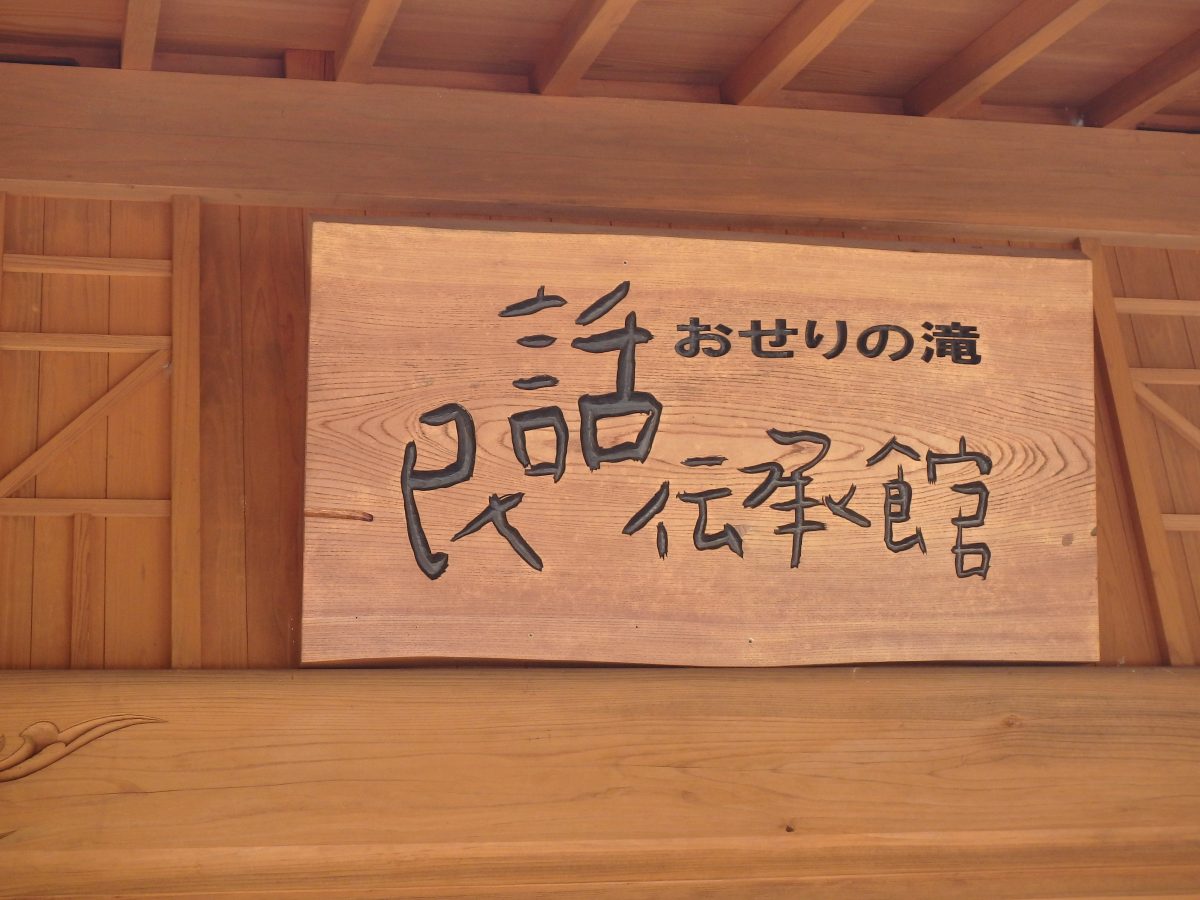 おせりの滝
民話伝承館